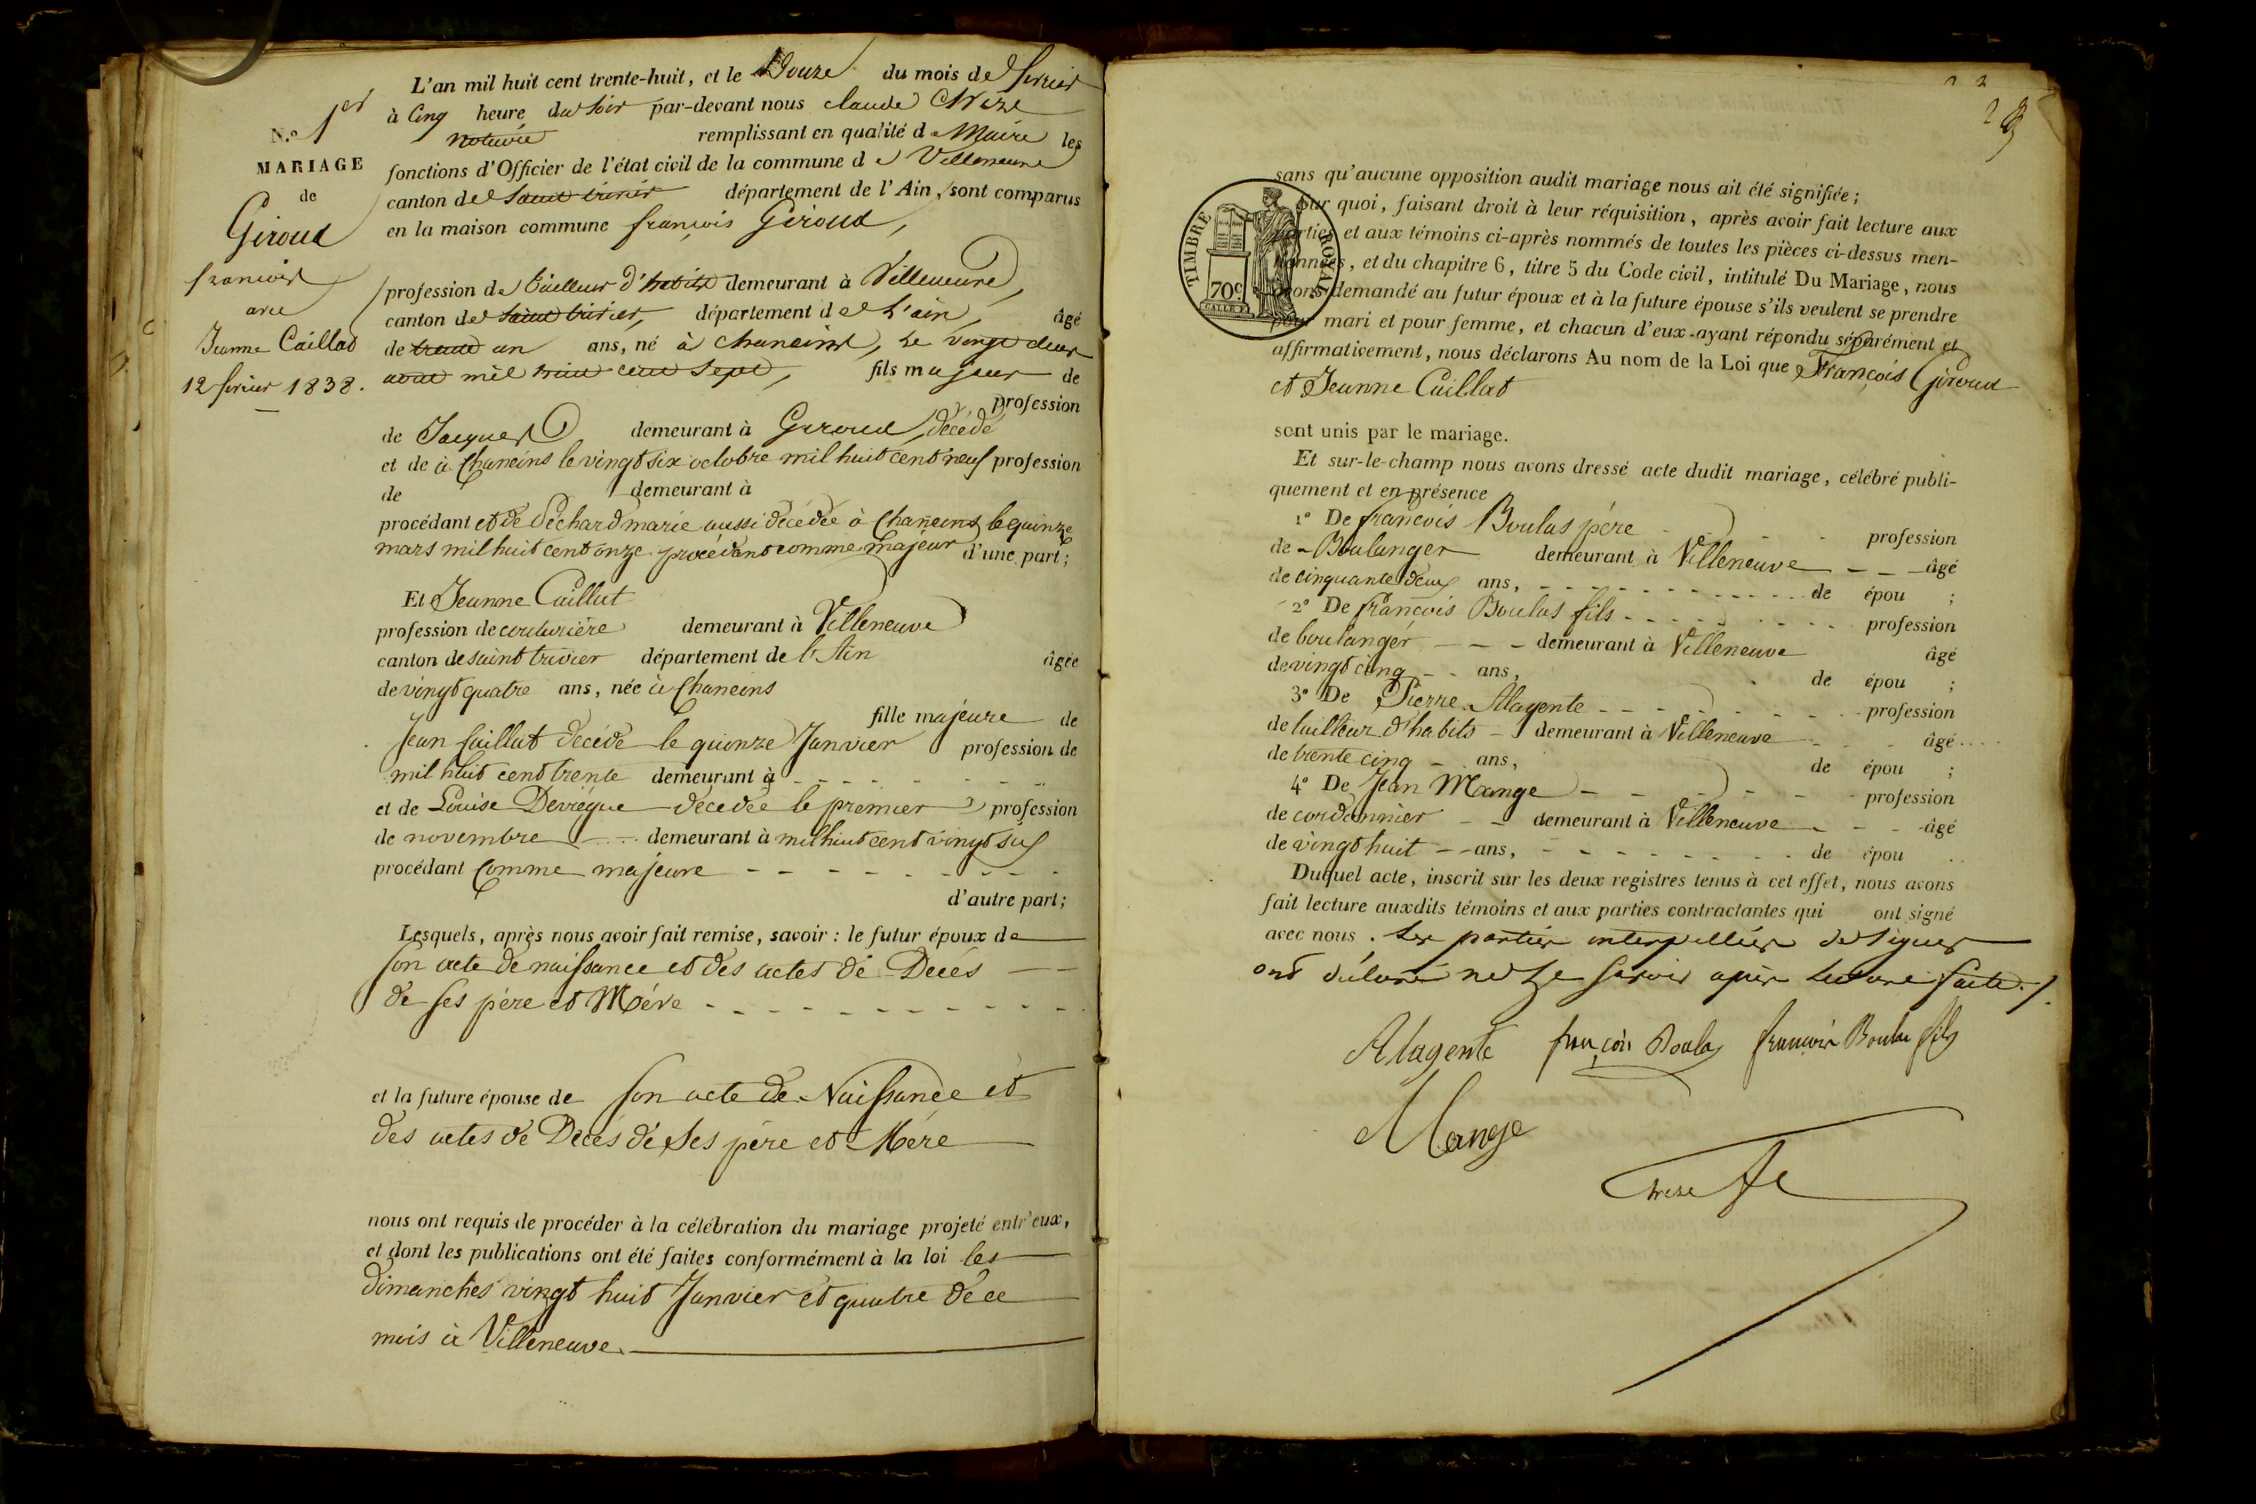 L'an mil huit cent trente-huit, et le Douze du mois de fevrier
N.o 1er
à Cinq heure du soir par-devant nous claude Chrize
notaire remplissant en qualité de Maire les
MARIAGE
fonctions d'Officier de l'état civil de la commune de Villeneuve
de
canton de Saint trivier département de l'Ain, sont comparus
Giroud
en la maison commune françois Giroud,
francois
profession de tailleur d'habits demeurant à Villeneuve,
avec
canton de saint trivier, département de L'ain, âgé
Jeanne Caillad
de trente un ans, né à chaneins, Le vingt deux
12 fevrier 1838.
aout mil huit cent sept, fils majeur de
profession
de Jacques demeurant à Giroud, décédé
et de à Chaneins le vingt six octobre mil huit cent neuf profession
de demeurant à
procédant et de Déchard marie aussi décédée à Chaneins le quinze
mars mil huit cent onze procédant comme majeur d'une part;
Et Jeanne Caillat
profession de couturière demeurant à Villeneuve
canton de saint trivier département de l'Ain âgée
de vingt quatre ans, née à Chaneins
fille majeure de
Jean Caillat décédé le quinze Janvier profession de
mil huit cent trente demeurant à
et de Louise Devrégue décédée le premier profession
de novembre demeurant à mil huit cent vingt six
procédant Comme majeure
d'autre part;
Lesquels, après nous avoir fait remise, savoir : le futur époux de
son acte de naissance et des actes de Décés
de ses père et Mére
et la future épouse de son acte de Naissance et
des actes de Décés de ses père et Mére
nous ont requis de procéder à la célébration du mariage projeté entr'eux,
et dont les publications ont été faites conformément à la loi les
dimanches vingt huit Janvier et quatre de ce
mois à Villeneuve.
23
sans qu'aucune opposition audit mariage nous ait été signifiée;
par quoi, faisant droit à leur réquisition, après avoir fait lecture aux
parties et aux témoins ci-après nommés de toutes les pièces ci-dessus men-
tionnées, et du chapitre 6, titre 5 du Code civil, intitulé Du Mariage, nous
avons demandé au futur époux et à la future épouse s'ils veulent se prendre
pour mari et pour femme, et chacun d'eux ayant répondu séparément et
affirmativement, nous déclarons Au nom de la Loi que François Giroud
et Jeanne Caillat
TIMBRE ROYAL
70c
sont unis par le mariage.
Et sur-le-champ nous avons dressé acte dudit mariage, célébré publi-
quement et en présence
1° De francois Boulas père profession
de Boulanger demeurant à Villeneuve âgé
de cinquante deux ans, de épou ;
2° De francois Boulas fils profession
de boulangér demeurant à Villeneuve âgé
de vingt cinq ans, de épou ;
3° De Pierre Alagente profession
de tailleur d'habits demeurant à Villeneuve âgé
de trente cinq ans, de épou ;
4° De Jean Mange profession
de cordonnier demeurant à Villeneuve âgé
de vingt huit ans, de épou
Duquel acte, inscrit sur les deux registres tenus à cet effet, nous avons
fait lecture auxdits témoins et aux parties contractantes qui ont signé
avec nous. Les parties interpellées de signer
ont déclaré ne le savoir après lecture faite./.
Alagente françois Boulas francois Boulas fils
Mange